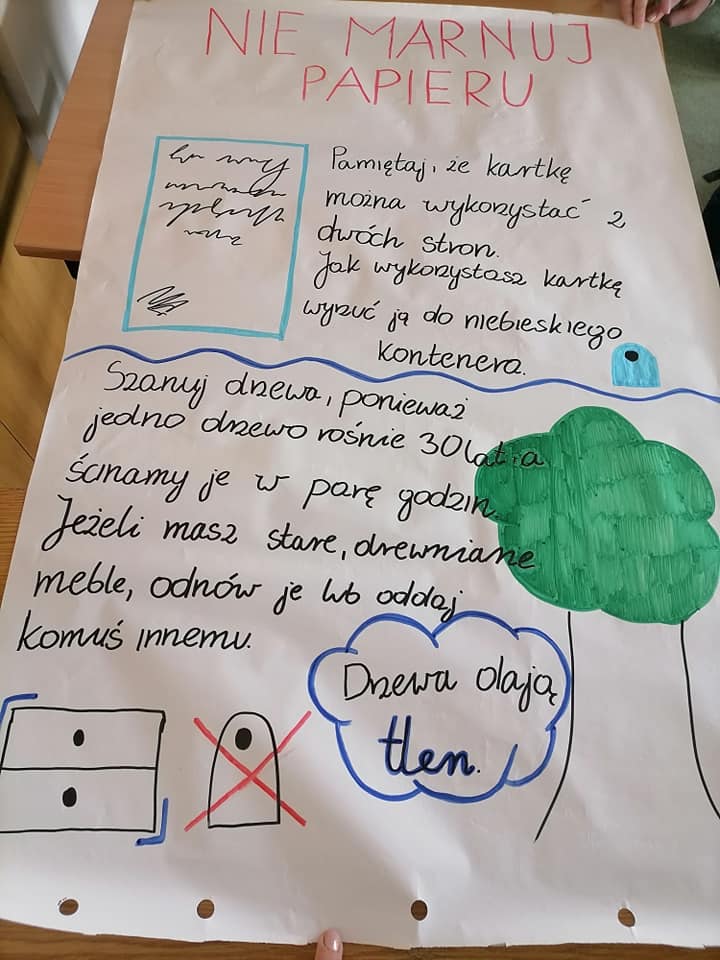 NIE MARNUJ
PAPIERU
Pamiętaj, że kartkę
można wykorzystać z
dwóch stron.
Jak wykorzystasz kartkę
wyrzuć ją do niebieskiego
kontenera.
Szanuj drzewa, ponieważ
jedno drzewo rośnie 30 lat, a
ścinamy je w parę godzin.
Jeżeli masz stare, drewniane
meble, odnów je lub oddaj
komuś innemu.
Drzewa dają
tlen.